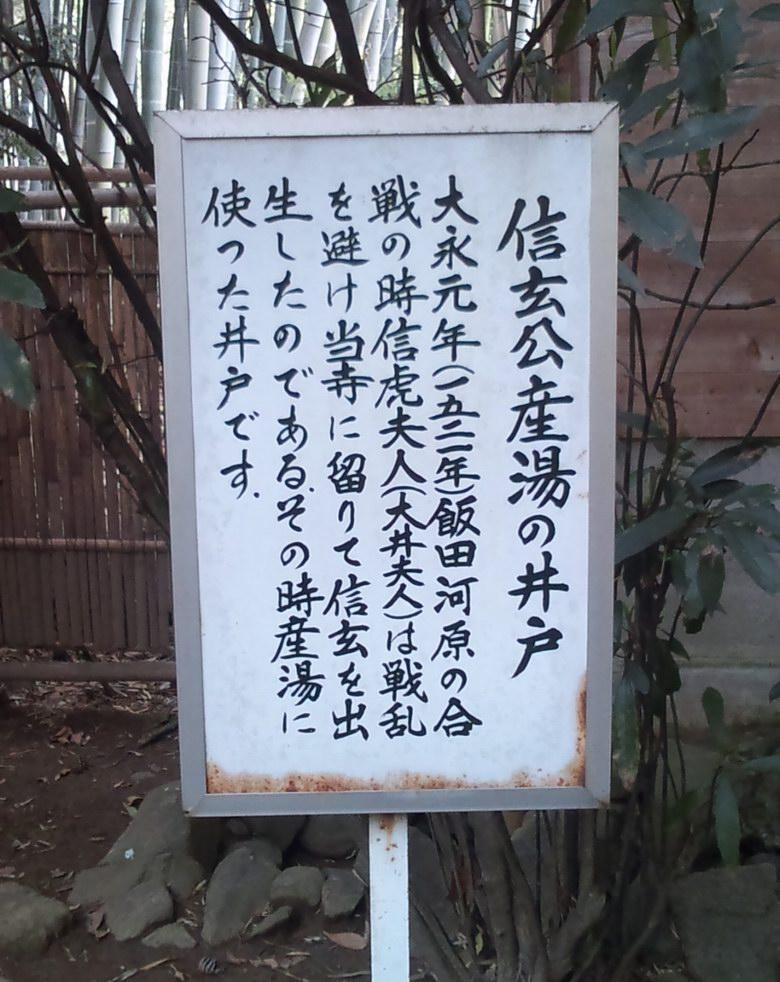 信玄公産湯の井戸
大永元年(一五二一年)飯田河原の合
戦の時信虎夫人(大井夫人)は戦乱
を避け当寺に留りて信玄を出
生したのである。その時産湯に
使った井戸です.